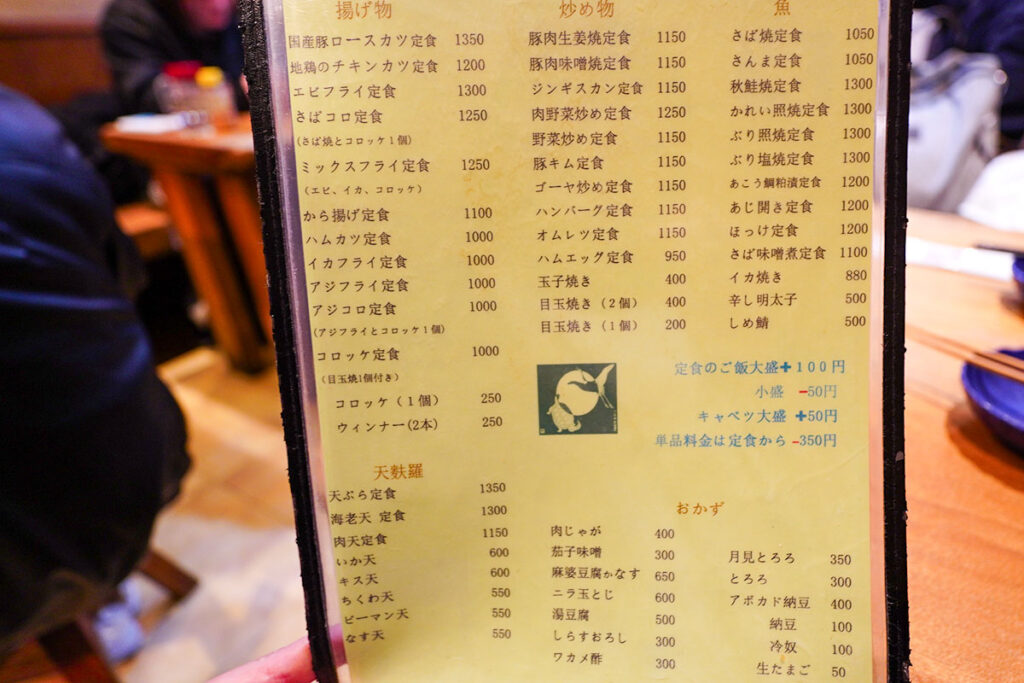 揚げ物
国産豚ロースカツ定食 1350
地鶏のチキンカツ定食 1200
エビフライ定食 1300
さばコロ定食 1250
(さば焼とコロッケ1個)
ミックスフライ定食 1250
(エビ、イカ、コロッケ)
から揚げ定食 1100
ハムカツ定食 1000
イカフライ定食 1000
アジフライ定食 1000
アジコロ定食 1000
(アジフライとコロッケ1個)
コロッケ定食 1000
(目玉焼1個付き)
コロッケ(1個) 250
ウィンナー(2本) 250
天麩羅
天ぷら定食 1350
海老天 定食 1300
肉天定食 1150
いか天 600
キス天 600
ちくわ天 550
ピーマン天 550
なす天 550
炒め物
豚肉生姜焼定食 1150
豚肉味噌焼定食 1150
ジンギスカン定食 1150
肉野菜炒め定食 1250
野菜炒め定食 1150
豚キム定食 1150
ゴーヤ炒め定食 1150
ハンバーグ定食 1150
オムレツ定食 1150
ハムエッグ定食 950
玉子焼き 400
目玉焼き(2個) 400
目玉焼き(1個) 200
魚
さば焼定食 1050
さんま定食 1050
秋鮭焼定食 1300
かれい照焼定食 1300
ぶり照焼定食 1300
ぶり塩焼定食 1300
あこう鯛粕漬定食 1200
あじ開き定食 1200
ほっけ定食 1200
さば味噌煮定食 1100
イカ焼き 880
辛し明太子 500
しめ鯖 500
定食のご飯大盛+100円
小盛 -50円
キャベツ大盛 +50円
単品料金は定食から -350円
おかず
肉じゃが 400
茄子味噌 300
麻婆豆腐かなす 650
ニラ玉とじ 600
湯豆腐 500
しらすおろし 300
ワカメ酢 300
月見とろろ 350
とろろ 300
アボカド納豆 400
納豆 100
冷奴 100
生たまご 50